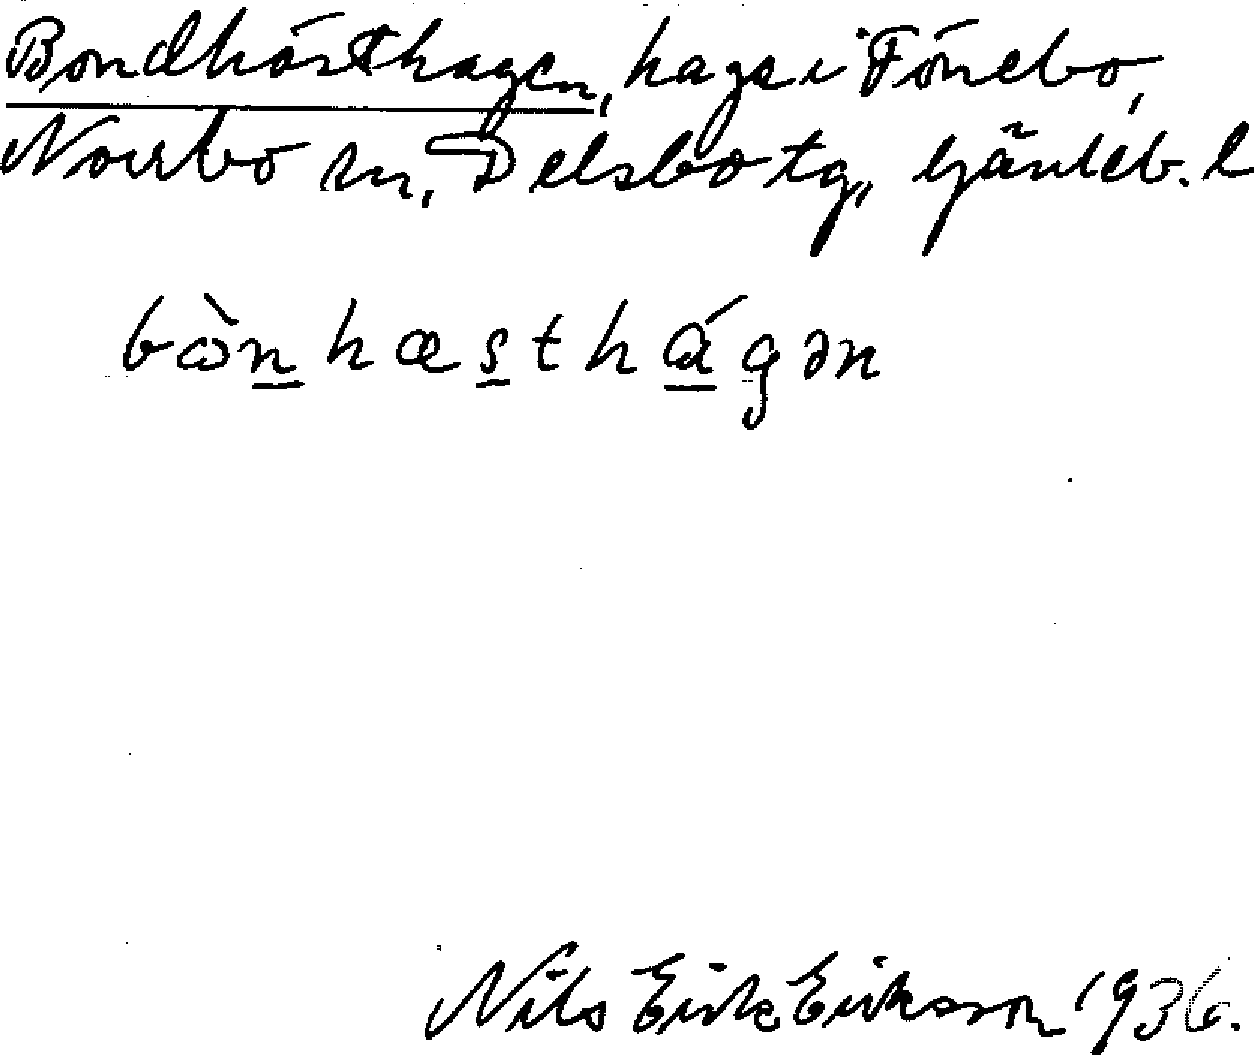 Bondhästhagen, hage i Fönebo,
Norrbo sn, Delsbo tg, Gävleb. l
bòn hæst hágən
Nils Erik Eriksson 1936.